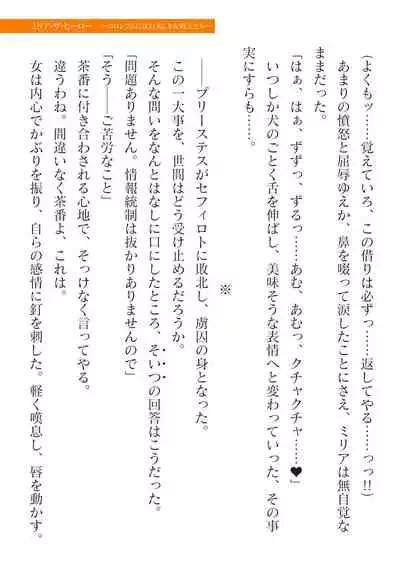 ミリア・ザ・ヒーロー
（よくもッ……覚えていろ、この借りは必ずっ……返してやる……っっ!!）
あまりの憤怒と屈辱ゆえか、鼻を啜って涙したことにさえ、ミリアは無自覚な
ままだった。
「はぁ、はぁ、ずずっ、ずるっ……あむ、あむっ、クチャクチャ……♥」
いつしか犬のごとく舌を伸ばし、美味そうな表情へと変わっていった、その事
実にすらも……。
※
――プリーステスがセフィロトに敗北し、虜囚の身となった。
この一大事を、世間はどう受け止めるだろうか。
そんな問いをなんとはなしに口にしたところ、そいつの回答はこうだった。
「問題ありません。情報統制は抜かりありませんので」
「そう――ご苦労なこと」
茶番に付き合わされる心地で、そっけなく言ってやる。
違うわね。間違いなく茶番よ、これは。
女は内心でかぶりを振り、自らの感情に釘を刺した。軽く嘆息し、唇を動かす。